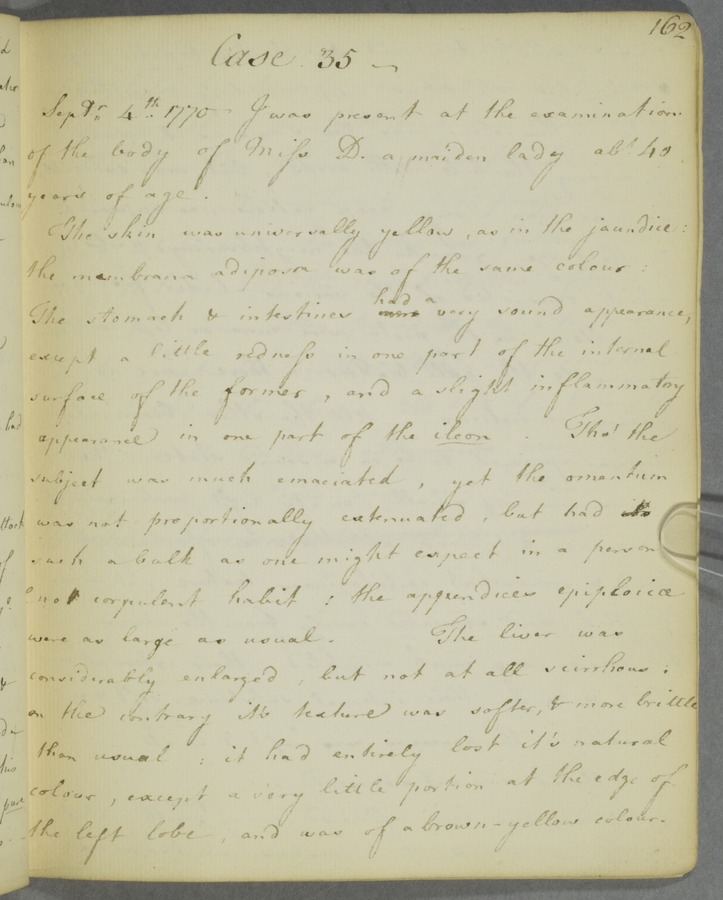 162
Case. 35
Septr. 4th. 1770 I was present at the examination
of the body of Miss D. a maiden lady abt. 40
years of age.
The skin was universally yellow, as in the jaundice:
the membrana adiposa was of the same colour:
The stomach & intestines were had a very sound appearance,
except a little redness in one part of the internal
surface of the former, and a slight inflammatory
appearance in one part of the ileon. Tho' the
subject was much emaciated, yet the omentum
was not proportionally extenuated, but had
such a bulk as one might expect in a person
not corpulent habit: the appendices epiploicæ
were as large as usual. The liver was
considerably enlarged, but not at all scirrhous:
on the contrary its texture was softer, & more brittle
than usual: it had entirely lost it's natural
colour, except a very little portion at the edge of
the left lobe, and was of a brown-yellow colour.